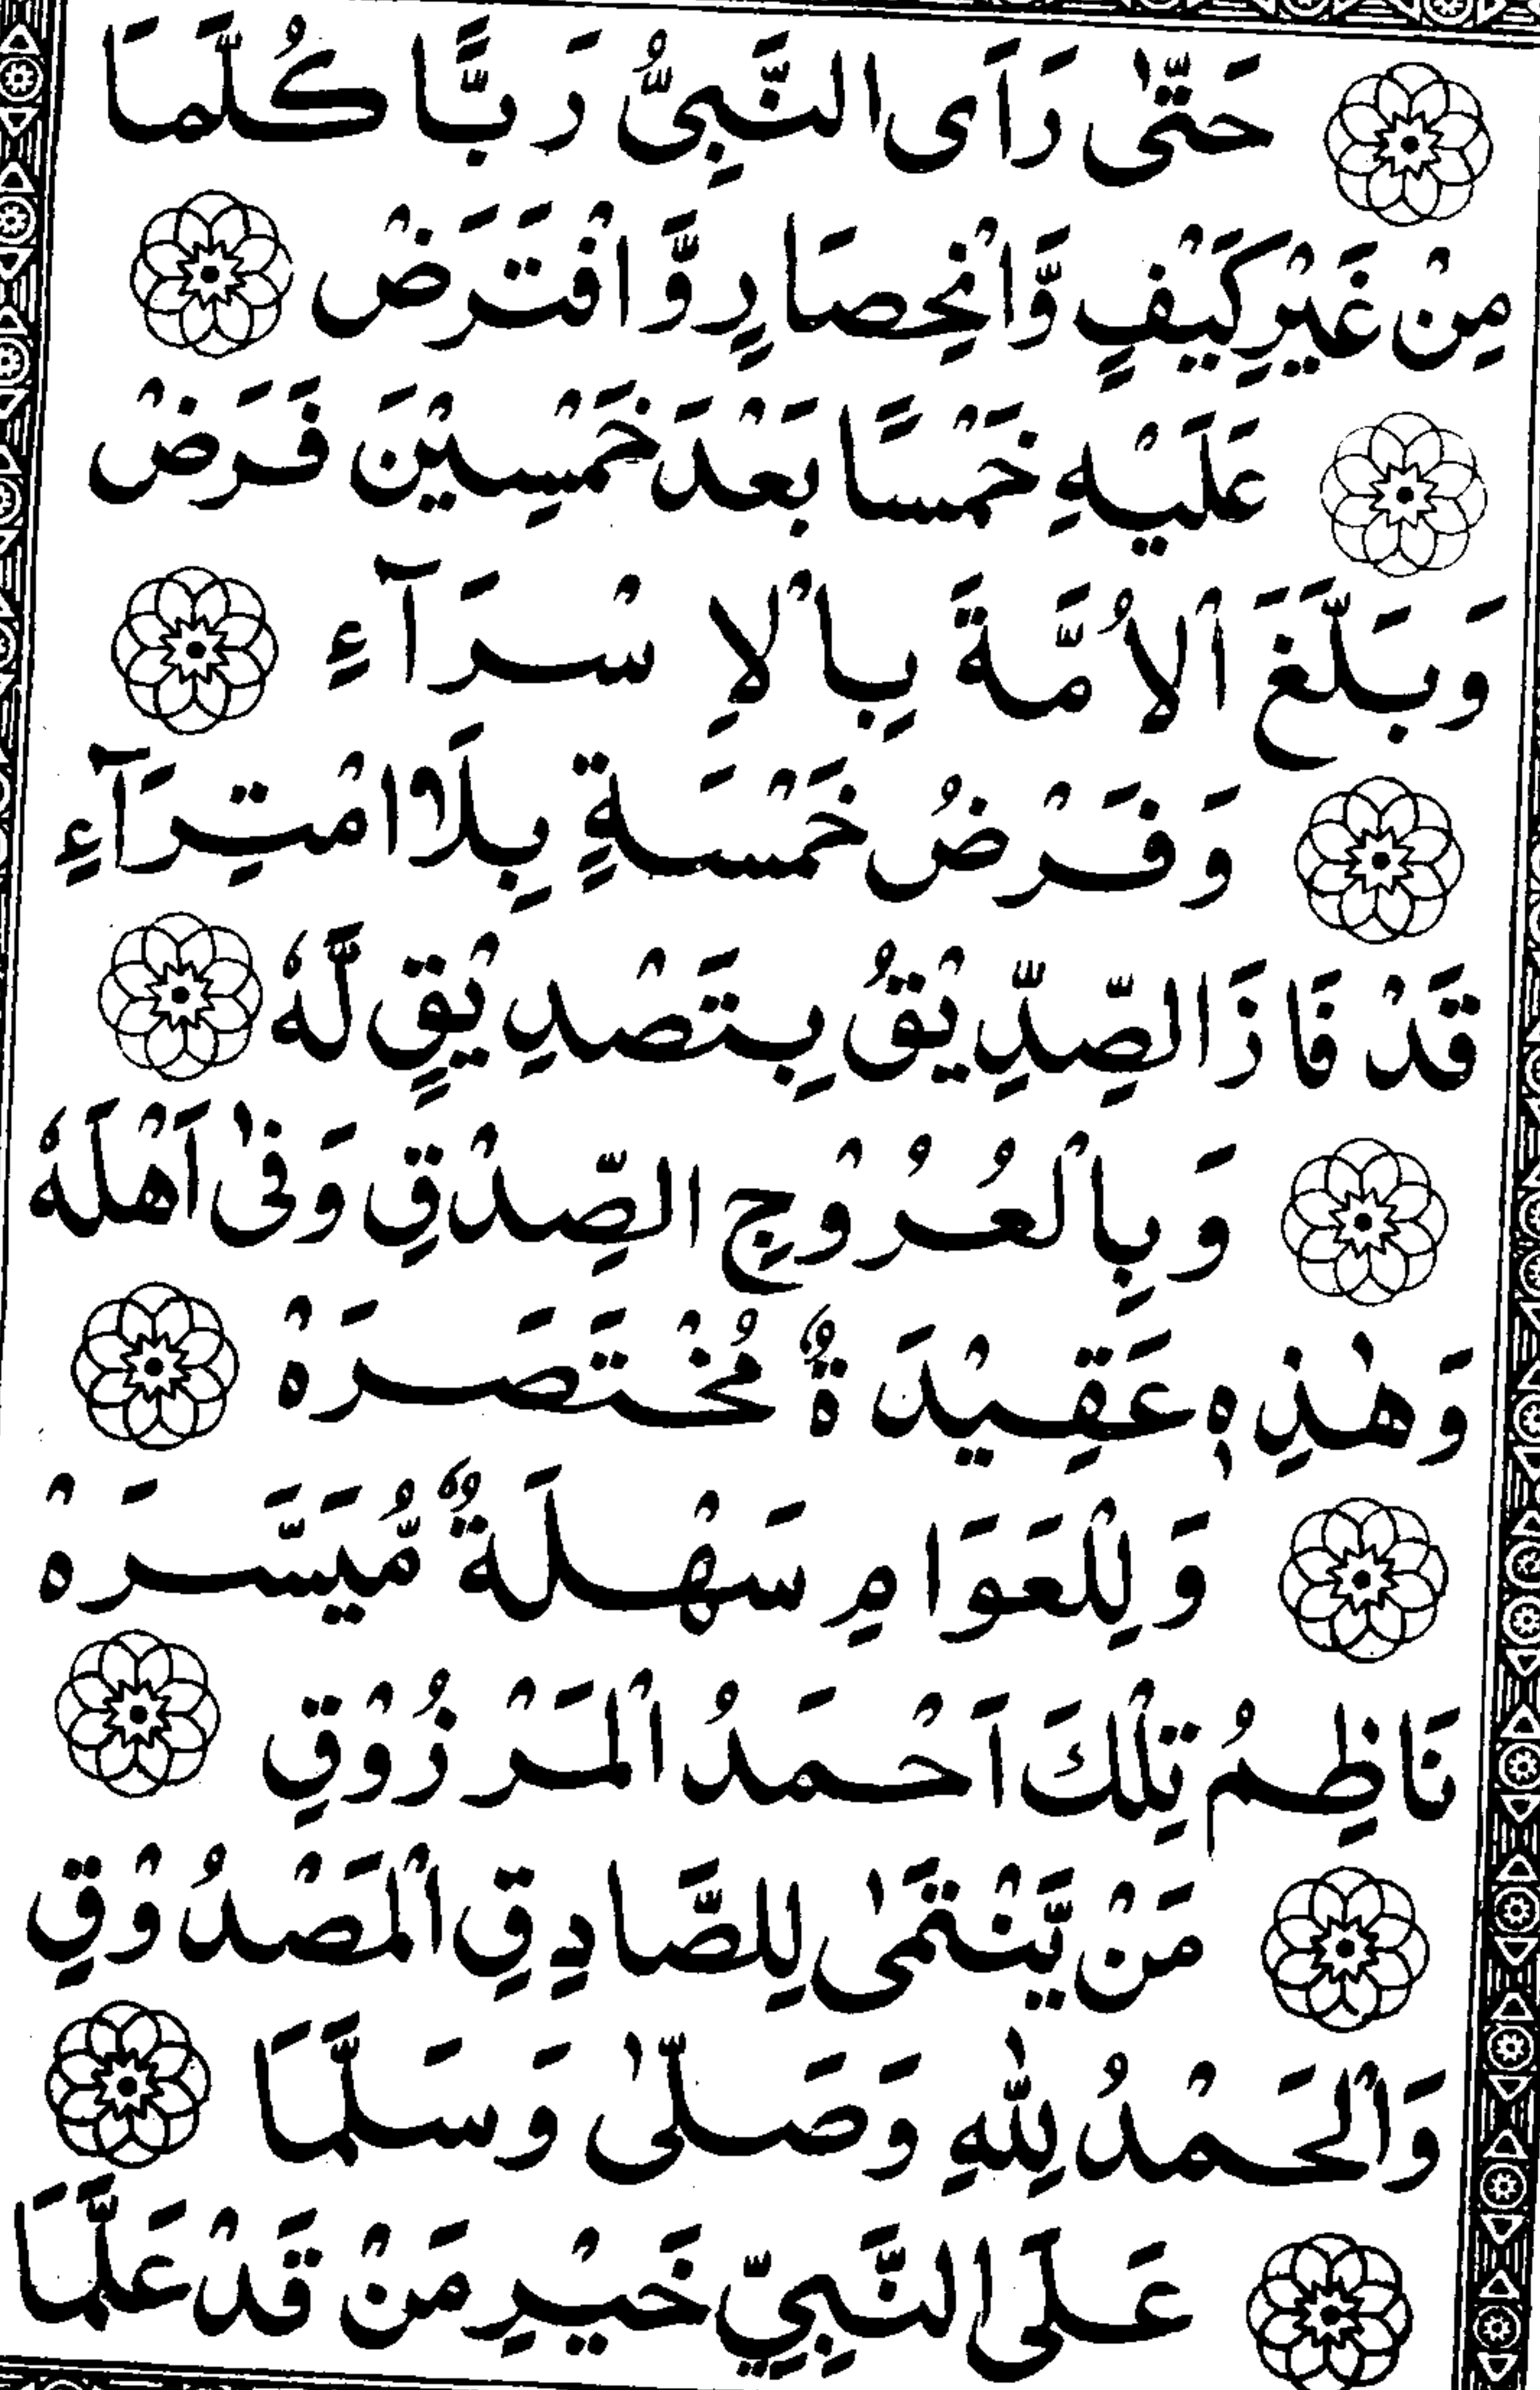 حَتّٰى رَاَى النَّبِيُّ رَبًّا كُلَّمَا
مِنْ غَيْرِ كَيْفٍ وَّانْحِصَارٍ وَّافْتَرَضْ
عَلَيْهِ خَمْسًا بَعْدَ خَمْسِيْنَ فَرَضْ
وَبَلَّغَ الْاُمَّةَ بِالْاِسْرَآءِ
وَفَرْضُ خَمْسَةٍ بِلَا امْتِرَآءِ
قَدْ فَازَ الصِّدِّيْقُ بِتَصْدِيْقٍ لَّهٗ
وَبِالْعُرُوْجِ الصِّدْقِ وَفٰى اَهْلَهٗ
وَهٰذِهٖ عَقِيْدَةٌ مُخْتَصَرَهْ
وَلِلْعَوَامِ سَهْلَةٌ مُّيَسَّرَهْ
نَاظِمُ تِلْكَ اَحْمَدُ الْمَرْزُوْقِ
مَنْ يَّنْتَمٰى لِلصَّادِقِ الْمَصْدُوْقِ
وَالْحَمْدُ لِلّٰهِ وَصَلّٰى وَسَلَّمَا
عَلَى النَّبِيِّ خَيْرِ مَنْ قَدْ عَلَّمَا